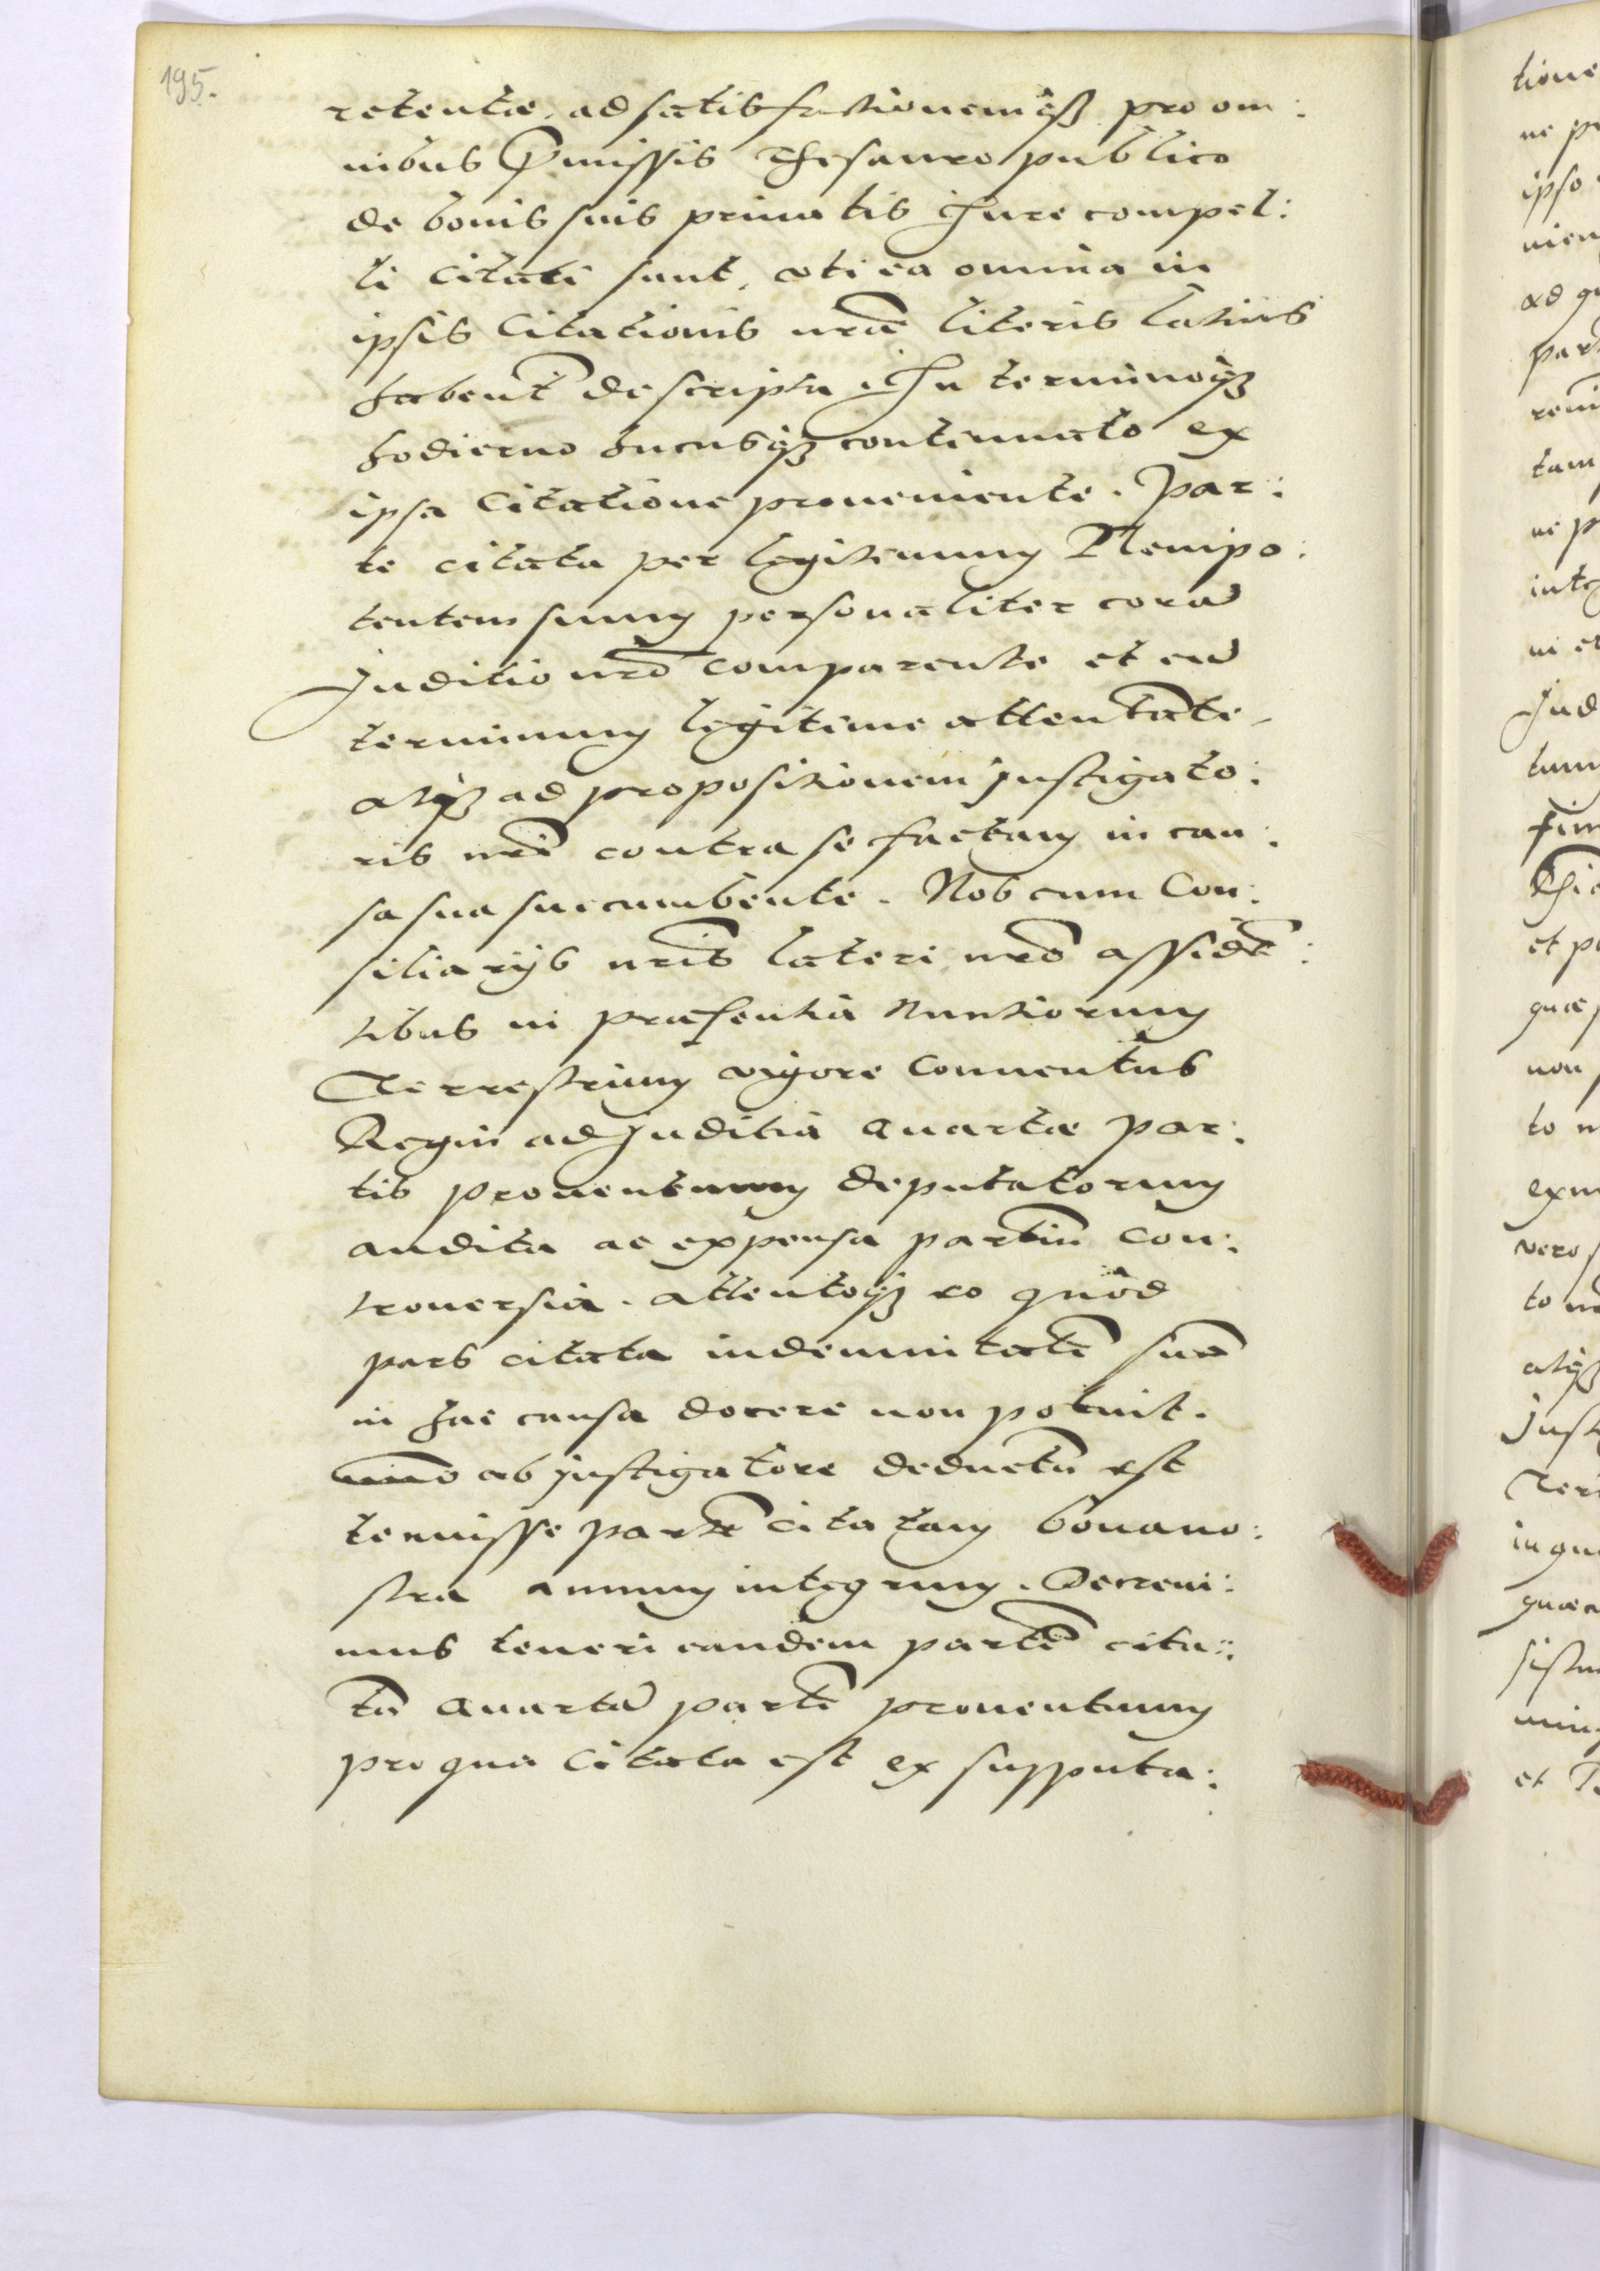 195.
retentæ, ad satisfactionemqꝫ pro om:
nibus p̃missis Thesauro publico
de bonis suis priuatis Jure compel:
li Citati sunt, vti ea omnia in
ipsis Citationis nr̃æ literis latius
habent̃ descripta. In terminoqꝫ
hodierno hucusqꝫ continuato ex
ipsa Citatione proueniente. Par:
te citata per legitimum Plenipo:
tentem suum personaliter corã
Juditio nrõ comparente et eũ
terminum legitime attentãte,
atqꝫ ad propositionem Instigato:
ris nrĩ contra se factam in cau:
sa sua succumbente. Nos cum Con:
siliarijs nrĩs lateri nrõ assidẽ:
tibus in præsentia Nuntiorum
Terrestrium vigore Conuentus
Regni ad Juditia Quartæ par:
tis prouentuum deputatorum
audita ac expensa partiũ con:
trouersia. Attentoqꝫ eo quòd
pars citata indemnitatẽ suã
in hac causa docere non potuit.
immo ab Instigatore deductũ est
tenuisse partẽ citatam bona no:
stra annum integrum. Decreui:
mus teneri eandem partẽ cita:
tã Quartã partẽ prouentuum
pro qua Citata est ex supputa:
tione
ne p
ipso
nien
ad q
par
tam
ne p
ni et
Jud
tum
et p
quæ
non
to n
vero
to n
atqꝫ
in qu
et